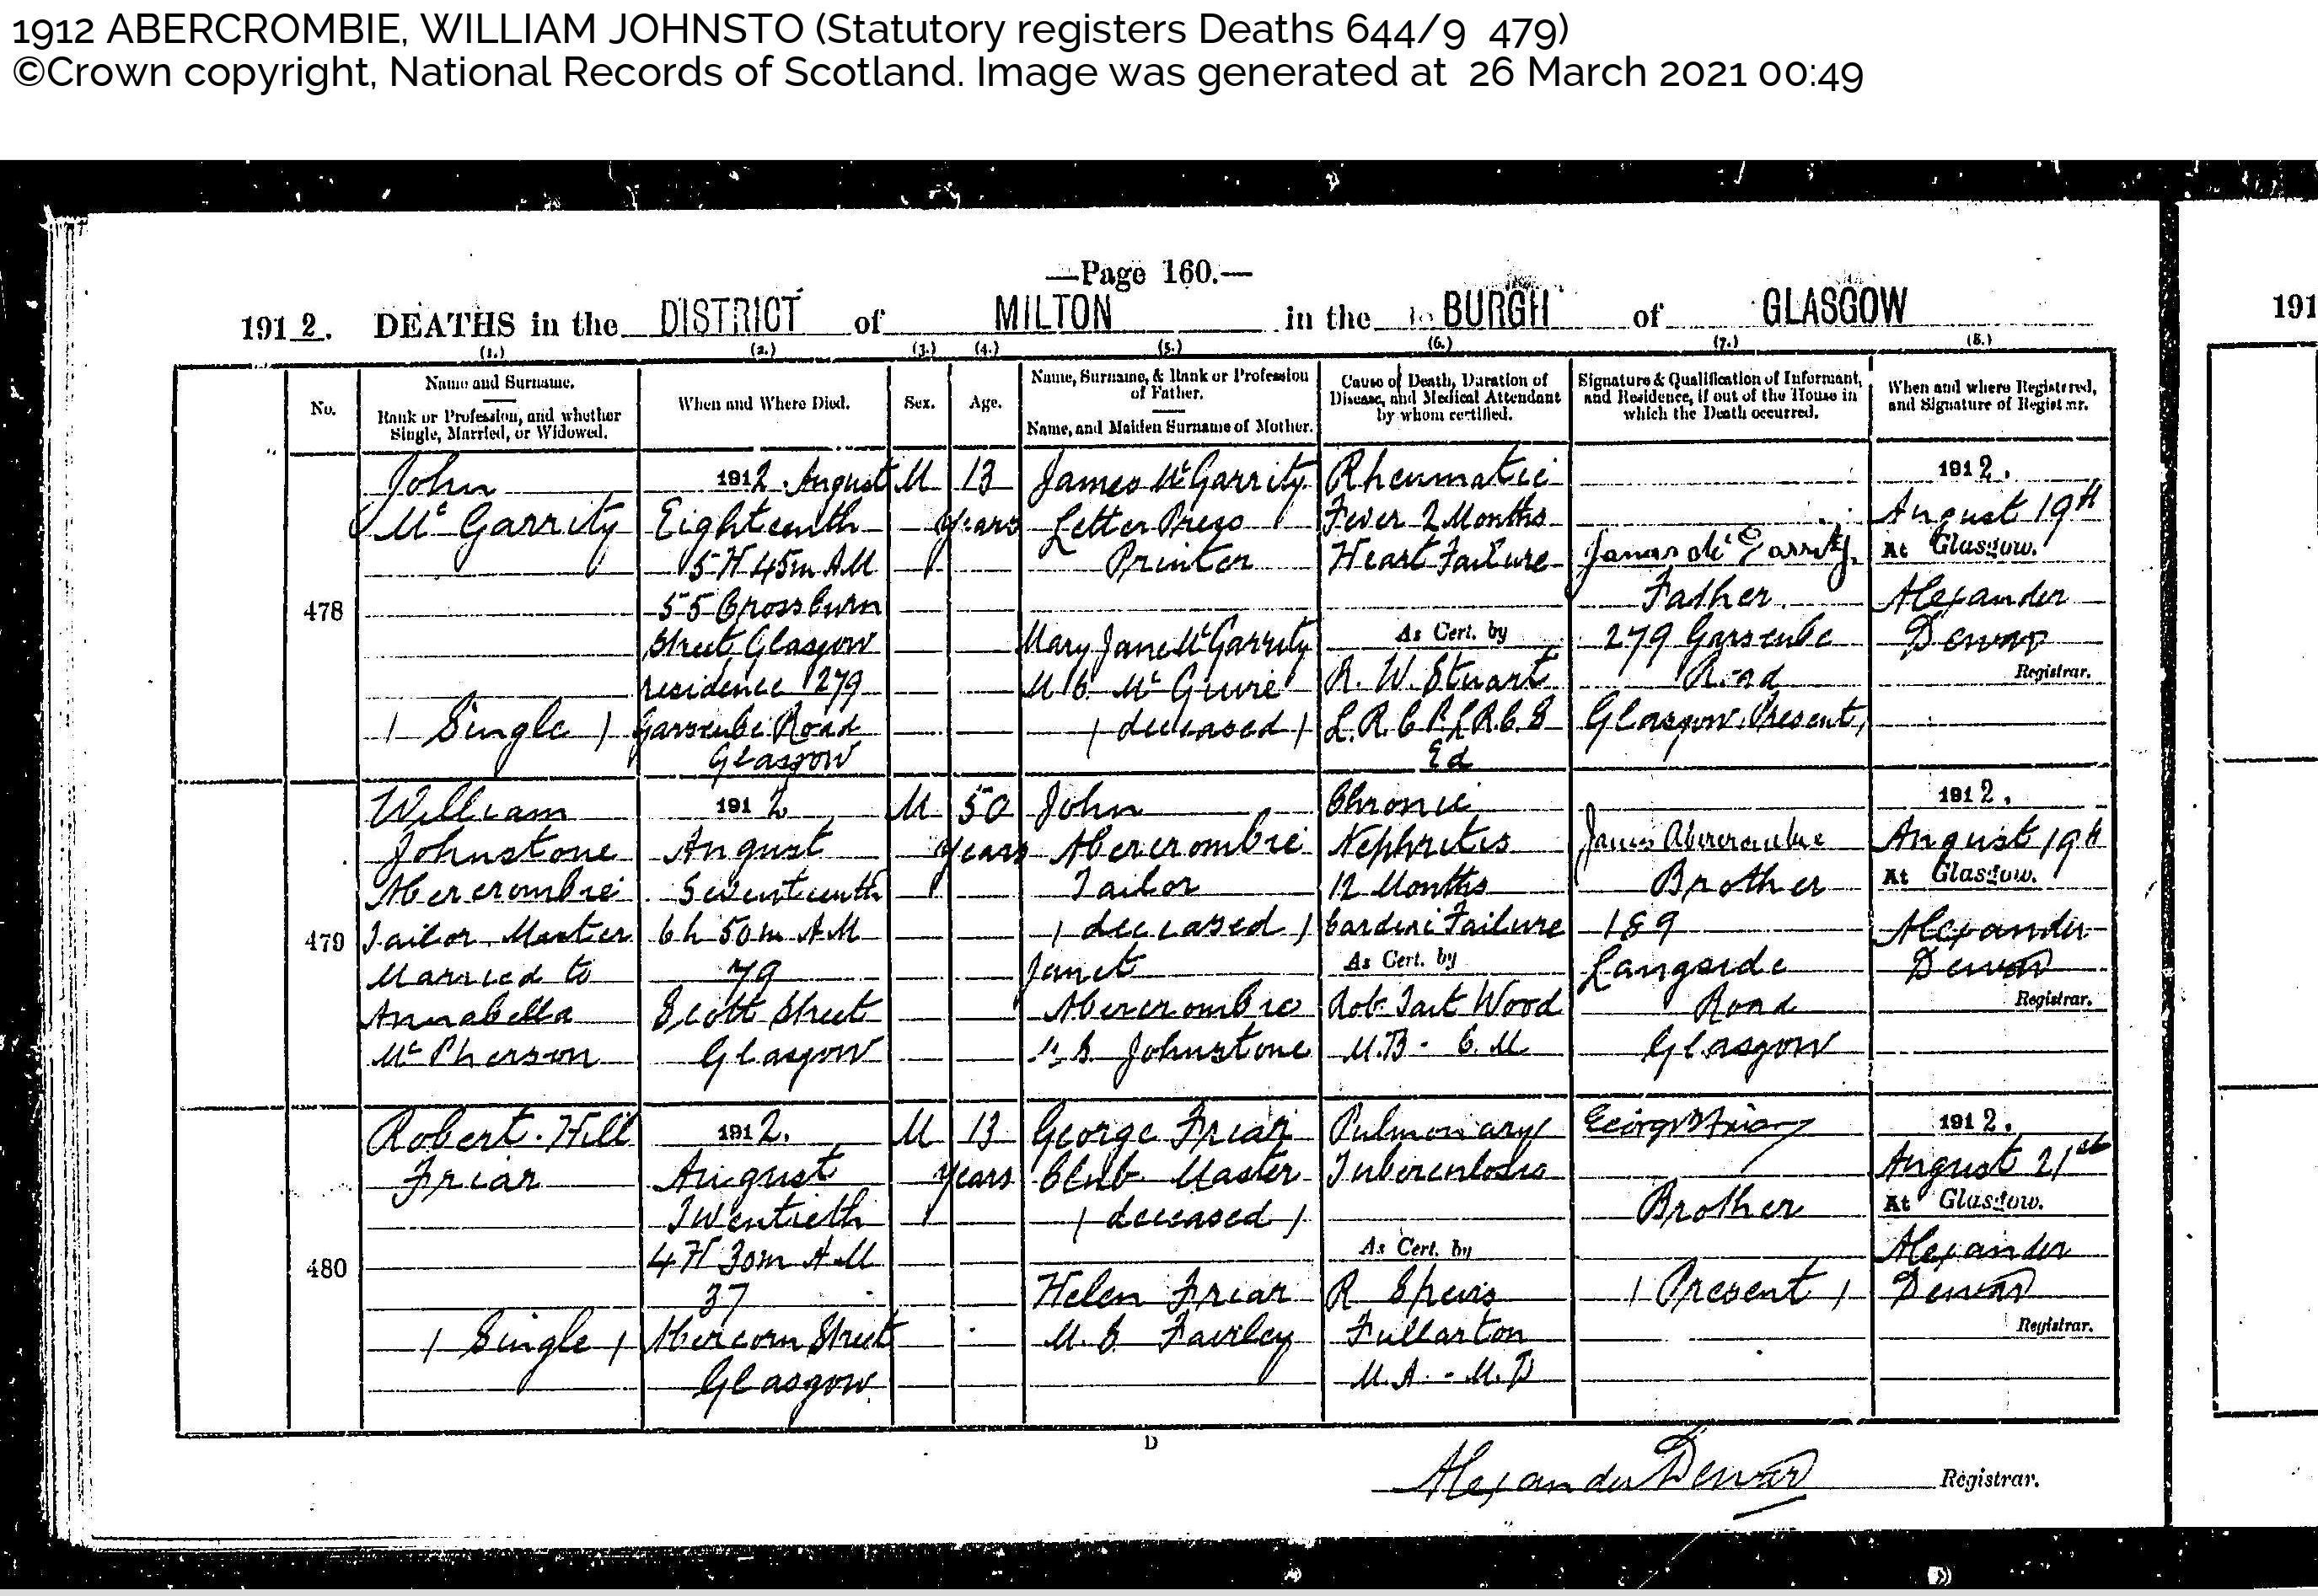 1912 ABERCROMBIE, WILLIAM JOHNSTO (Statutory registers Deaths 644/9 479)
©Crown copyright, National Records of Scotland. Image was generated at 26 March 2021 00:49
—Page 160.—
1912. DEATHS in the DISTRICT of MILTON in the BURGH of GLASGOW
191
(1.) (2.) (3.) (4.) (5.) (6.) (7.) (8.)
No.
Name and Surname.
Rank or Profession, and whether
Single, Married, or Widowed.
When and Where Died.
Sex.
Age.
Name, Surname, & Rank or Profession
of Father.
Name, and Maiden Surname of Mother.
Cause of Death, Duration of
Disease, and Medical Attendant
by whom certified.
Signature & Qualification of Informant,
and Residence, if out of the House in
which the Death occurred.
When and where Registered,
and Signature of Registrar.
478
John
McGarrity
(Single)
1912. August
Eighteenth
5 H 45m AM
55 Grossburn
Street Glasgow
residence 279
Garscube Road
Glasgow
M
13
years
James McGarrity
Letter Press
Printer
Mary Jane McGarrity
M.S. McGuire
(deceased)
Rheumatic
Fever 2 Months
Heart Failure
As Cert. by
R. W. Stuart
L.R.C.P. L.R.C.S
Ed
James McGarrity
Father
279 Garscube
Road
Glasgow (Present)
1912.
August 19th
At Glasgow.
Alexander
Dewar
Registrar.
479
William
Johnstone
Abercrombie
Tailor Master
Married to
Annabella
McPherson
1912
August
Seventeenth
6 h 50m AM
79
Scott Street
Glasgow
M
50
years
John
Abercrombie
Tailor
(deceased)
Janet
Abercrombie
M.S. Johnstone
Chronic
Nephritis
12 Months
Cardiac Failure
As Cert. by
Rob. Tait Wood
M.B. C.M
James Abercrombie
Brother
189
Langside
Road
Glasgow
1912.
August 19th
At Glasgow.
Alexander
Dewar
Registrar.
480
Robert Hill
Friar
(Single)
1912.
August
Twentieth
4 H 30m AM
37
Abercorn Street
Glasgow
M
13
years
George Friar
Club Master
(deceased)
Helen Friar
M.S. Fairley
Pulmonary
Tuberculosis
As Cert. by
R Speirs
Fullarton
M.A. - M.D
George Friar
Brother
(Present)
1912.
August 21st
At Glasgow.
Alexander
Dewar
Registrar.
D
Alexander Dewar Registrar.